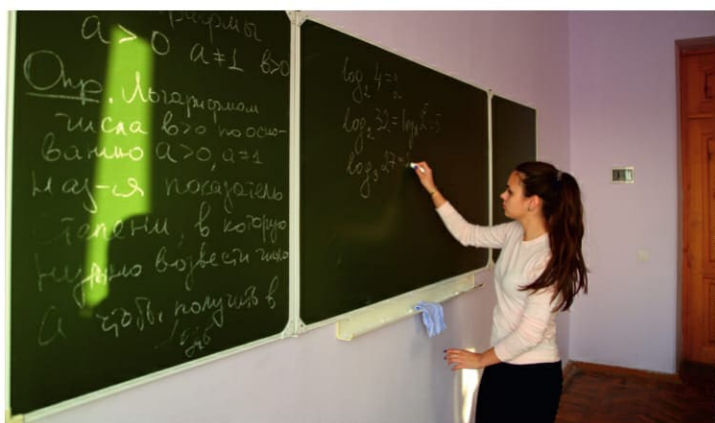 a>0 a≠1 b>0
Опр. Логарифмом
числа b>0 по осно-
ванию a>0, a≠1
Наз-ся показатель
степени, в которую
нужно возвести число
a чтобы получить b
log₂ 4 = 2
log₂ 32 = log₂ 2⁵ = 5
log₃ 27 =